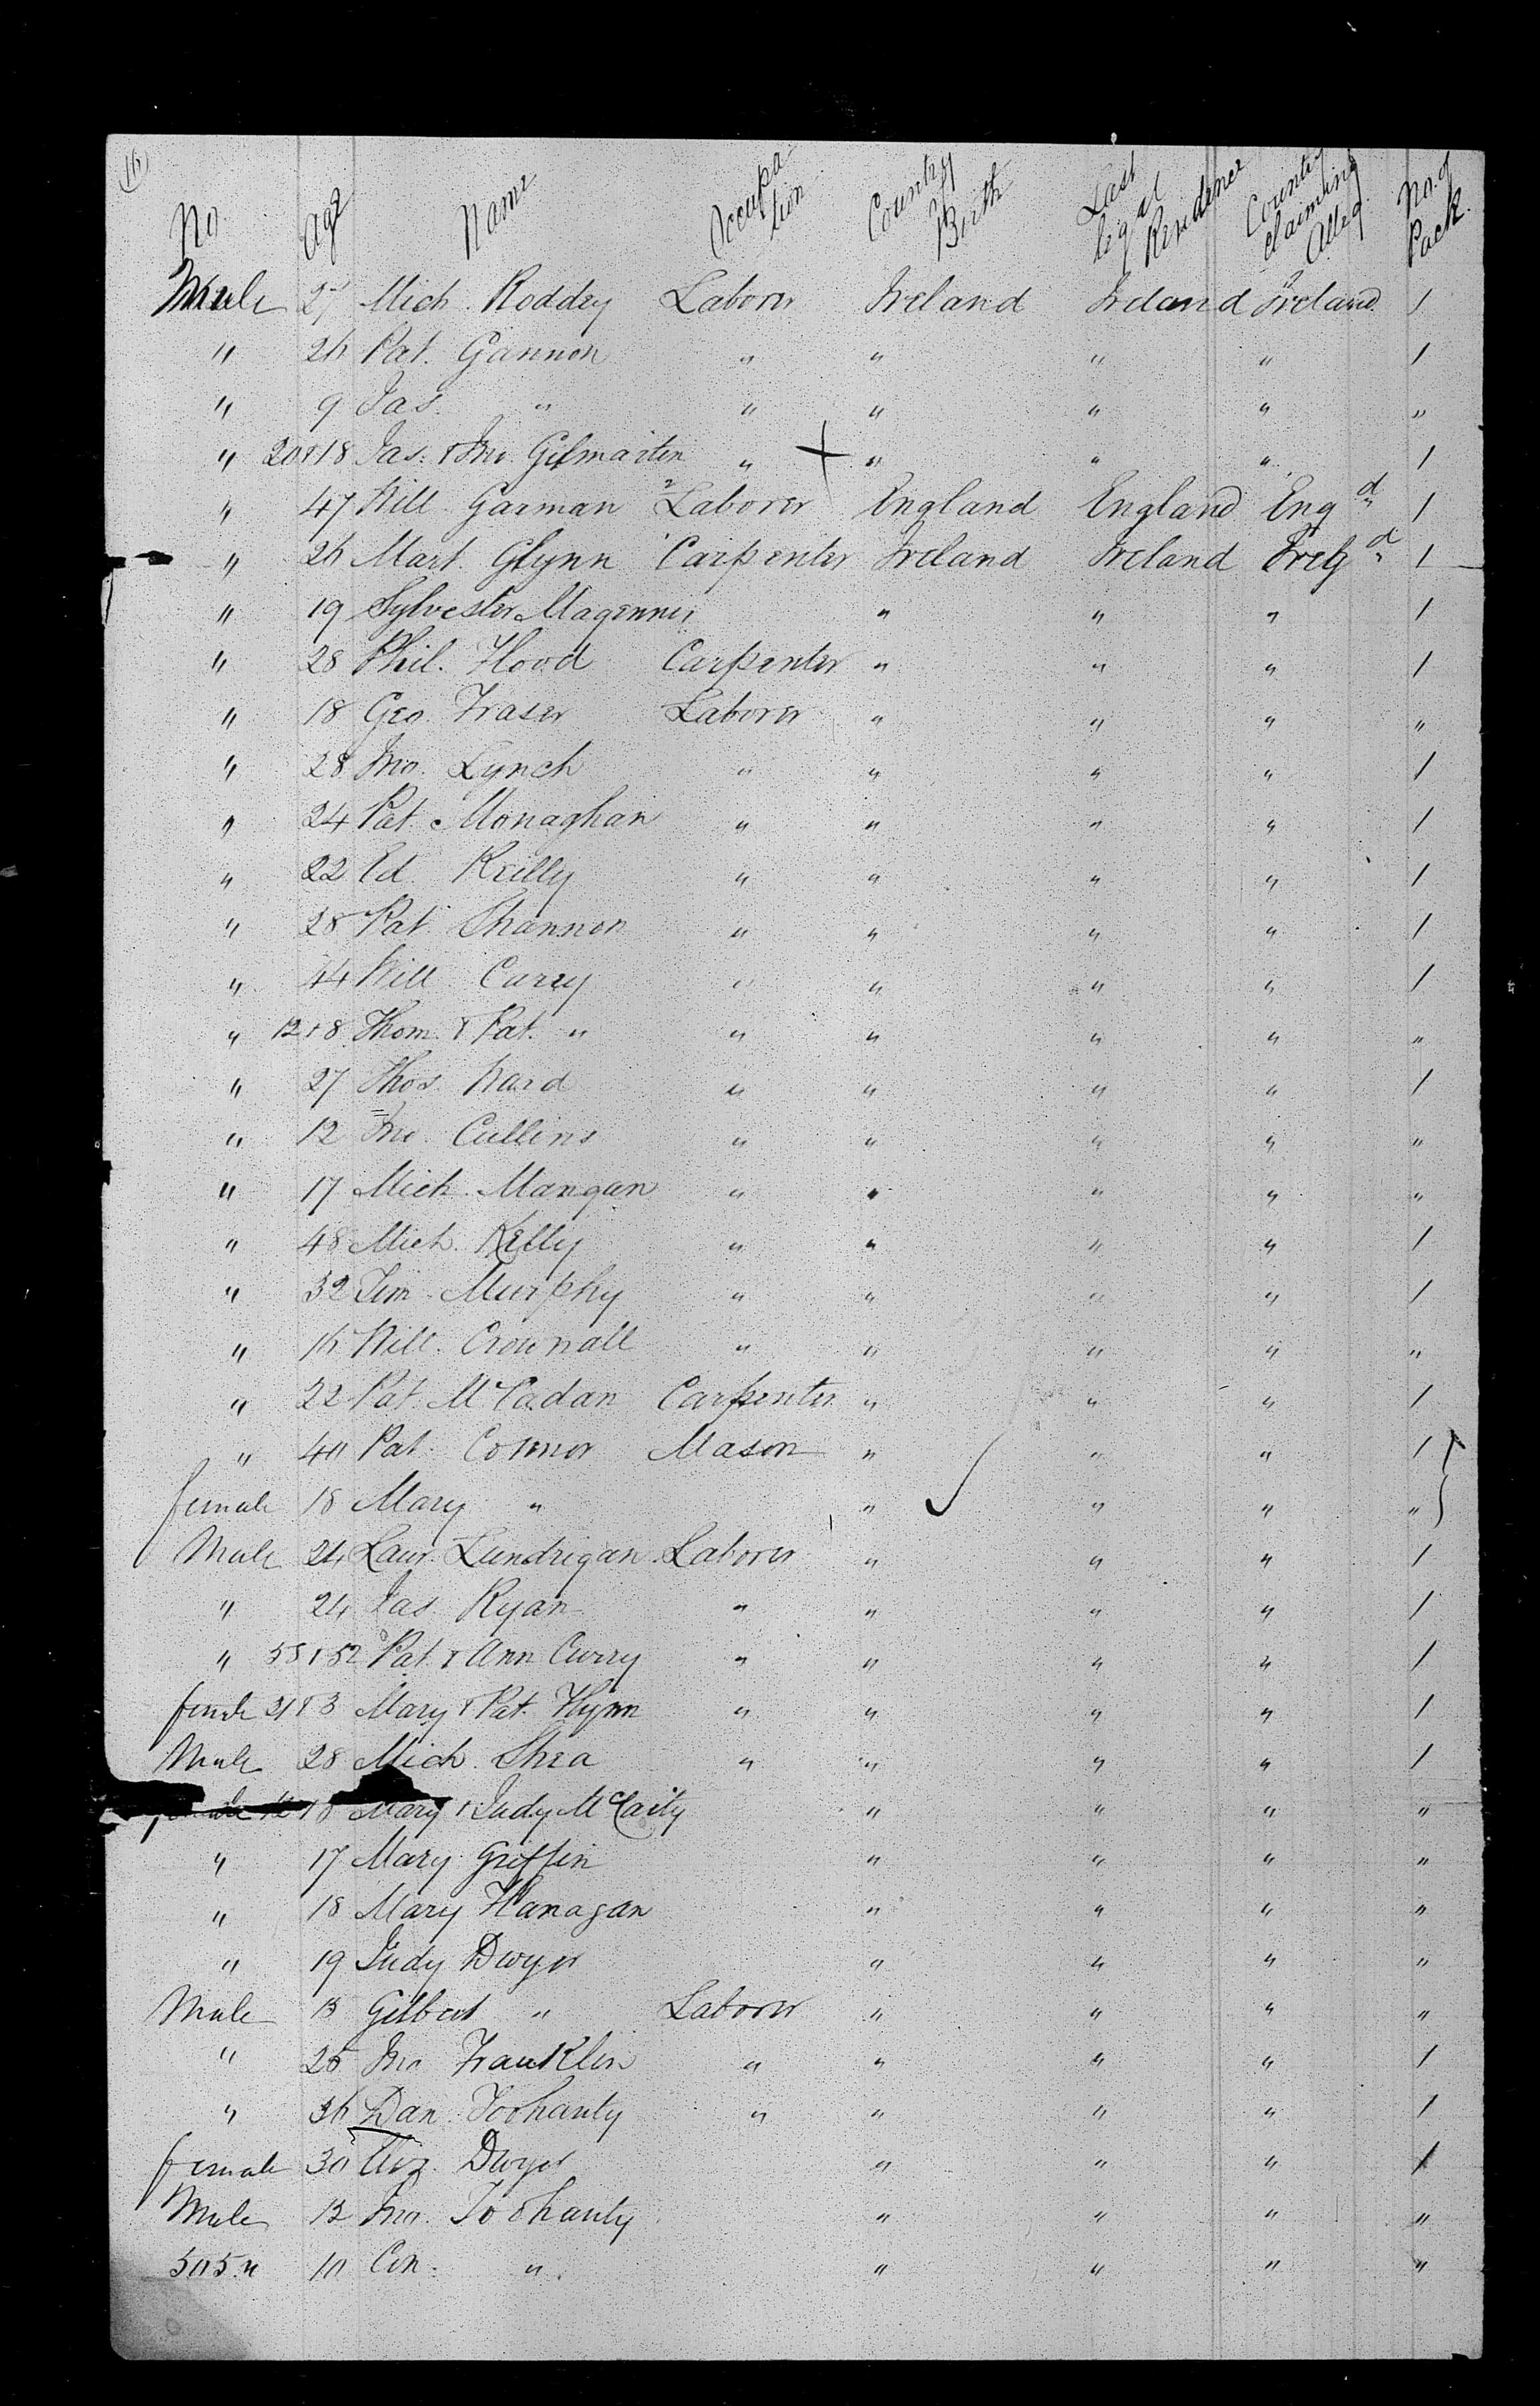 16
No. Age Name Occupa-tion Country Birth Last legal Residence Country claiming Alleg. No. of Pack.
Male 27 Mich. Roddey Laborer Ireland Ireland Ireland 1
" 26 Pat. Gannon " " " " 1
" 9 Jas. " " " " " "
" 20 & 18 Jas. & Jno. Gilmartin " " " " 1
" 47 Will Garman Laborer England England Eng d 1
" 26 Mart. Glynn Carpenter Ireland Ireland d 1
" 19 Sylvester Magennis " " " 1
" 28 Phil. Hood Carpenter " " " 1
" 18 Geo. Fraser Laborer " " " "
" 28 Jno. Lynch " " " " 1
" 24 Pat. Monaghan " " " " 1
" 22 Ed. Reilly " " " " 1
" 28 Pat Shannon " " " " 1
" 44 Will Carey " " " " 1
" 12 & 8 Thom. & Pat. " " " " " "
" 27 Thos. Ward " " " " 1
" 12 Jno. Cullins " " " " "
" 17 Mich. Mangan " " " " "
" 48 Mich. Kelly " " " " 1
" 32 Tim. Murphy " " " " 1
" 16 Will. Crownall " " " " "
" 22 Pat. McCadan Carpenter " " " 1
" 40 Pat. Connor Mason " " " 1
female 18 Mary " " " " "
Male 24 Laur. Lundrigan Laborer " " " 1
" 24 Jas. Ryan " " " " 1
" 55 & 52 Pat. & Ann Curry " " " " 1
female 21 & 3 Mary & Pat. Flynn " " " " 1
Male 28 Mich. Shea " " " " 1
female & 18 Mary & Judy McCarty " " " "
" 17 Mary Griffin " " " "
" 18 Mary Flanagan " " " "
" 19 Judy Dwyer " " " "
Male 13 Gilbert " Laborer " " " "
" 25 Jno Franklin " " " " 1
" 36 Dan. Toohanty " " " " 1
female 30 Dwyer " " " 1
Male 12 Jno. Toohanty " " " "
505 " 10 Con. " " " " "